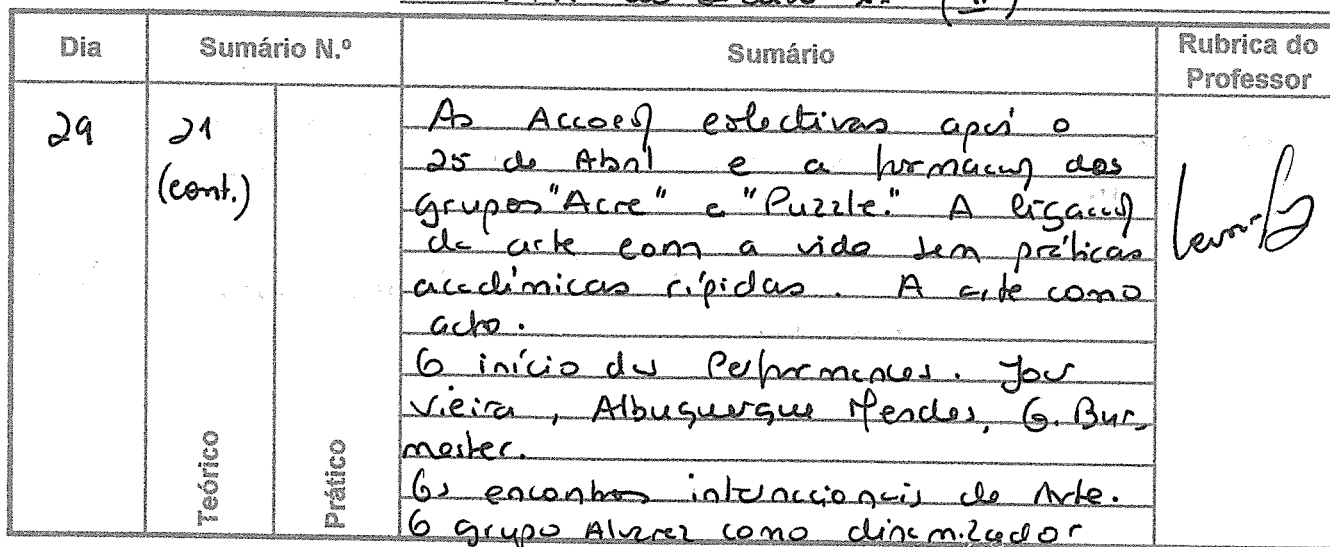 do século XX (II)
Dia
Sumário N.º
Sumário
Rubrica do
Professor
29
21
(cont.)
As Accoes colectivas após o
25 de Abril e a formacao dos
grupos "Acre" e "Puzzle." A ligacao
da arte com a vida sem práticas
académicas rígidas. A arte como
acto.
O início das Performances. Joao
Vieira, Albuquerque Mendes, G. Bur_
mester.
Os encontros internacionais de Arte.
O grupo Alvarez como dinamizador
Teórico
Prático